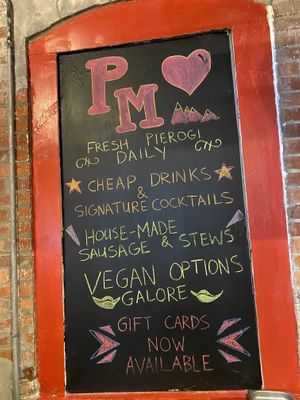 PM
FRESH PIEROGI
DAILY
CHEAP DRINKS
&
SIGNATURE COCKTAILS
HOUSE-MADE
SAUSAGE & STEWS
VEGAN OPTIONS
GALORE
GIFT CARDS
NOW
AVAILABLE